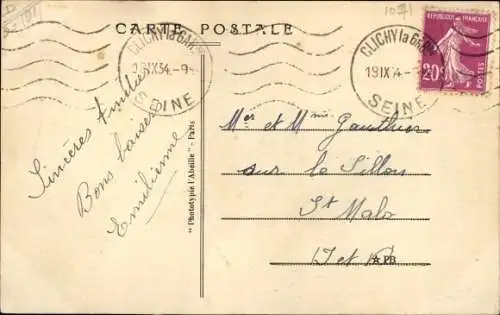 CARTE POSTALE
1071
CLICHY la GARENNE
19 IX 34 -9
SEINE
CLICHY la GARENNE
19 IX 34 -
SEINE
REPUBLIQUE FRANCAISE
20c
POSTES
Sincères Amitiés
Bons baisers
Emilienne
"Phototypie l'Abeille" - Paris
Mer et Mme Gauthier
sur le Sillon
St Malo
I et V
PB